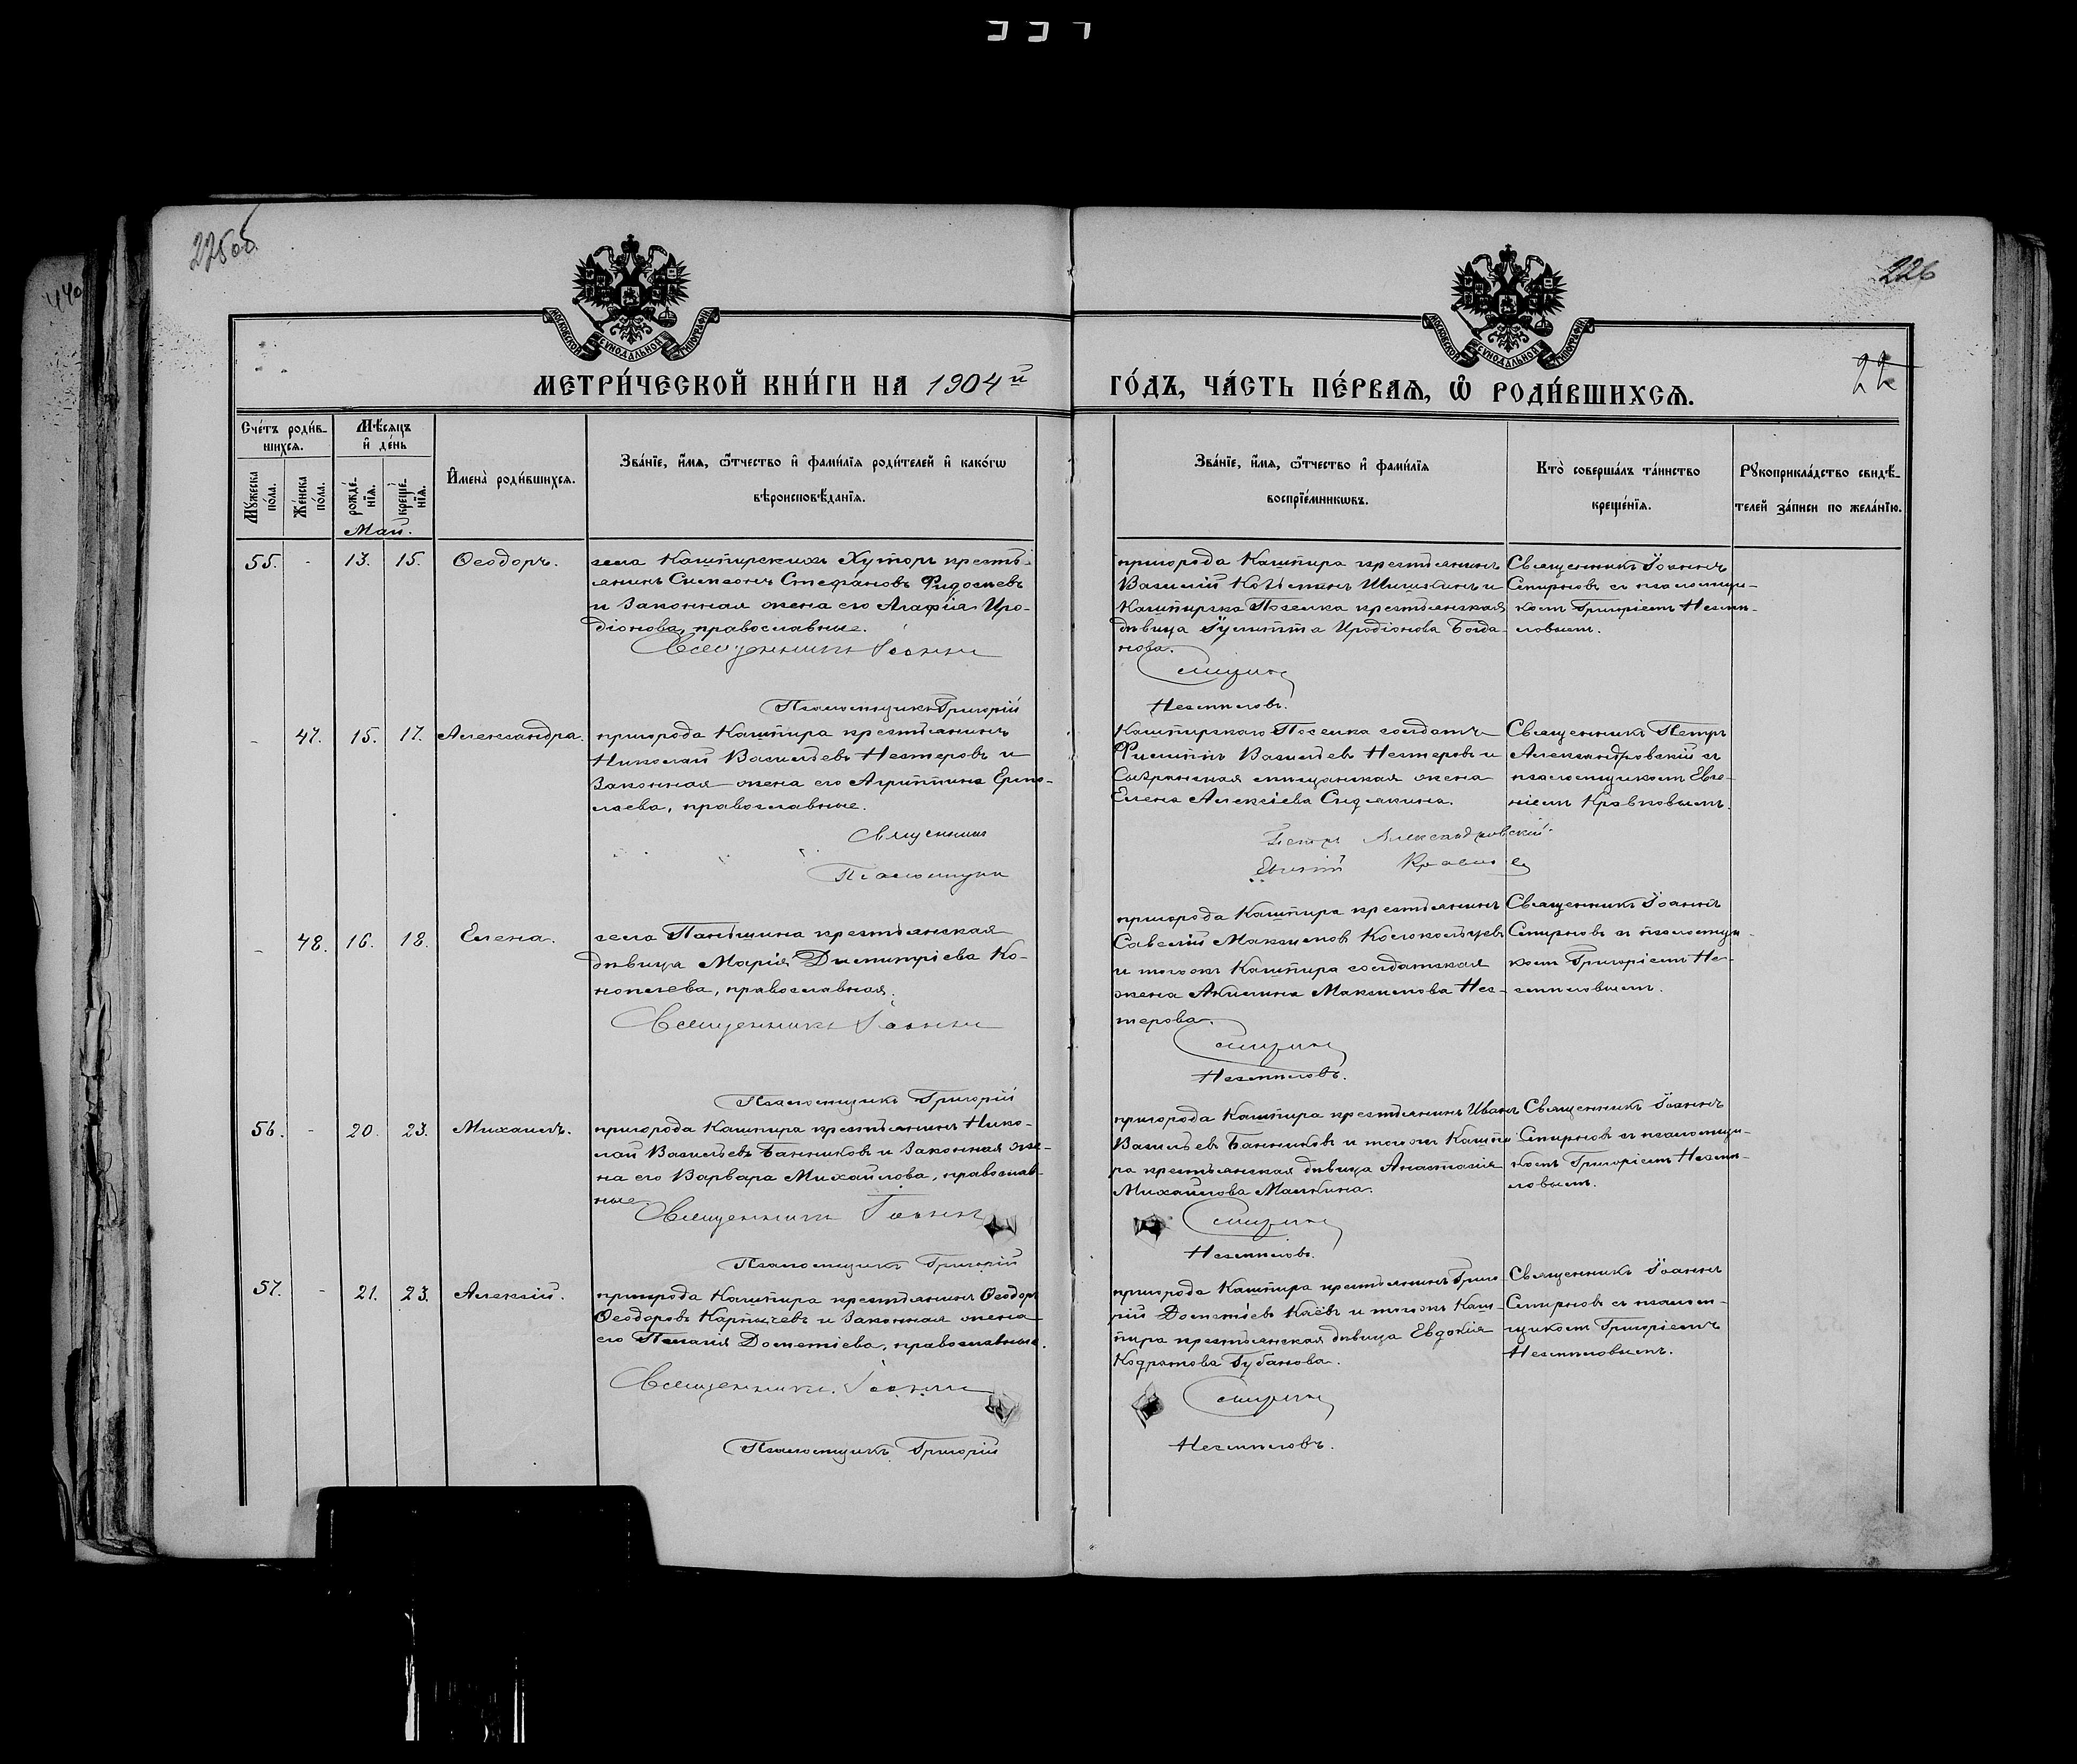 225об
226
22
МОСКОВСКОЙ СѴНОДАЛЬНОЙ ТИПОГРАФІИ
МОСКОВСКОЙ СѴНОДАЛЬНОЙ ТИПОГРАФІИ
МЕТРИ́ЧЕСКОЙ КНИ́ГИ НА 1904й ГО́ДЪ, ЧА́СТЬ ПЕ́РВАѦ, Ѽ РОДИ́ВШИХСѦ.
Сче́тъ роди́в-
шихся.
Мѣ́сяцъ
и҆ де́нь
Мꙋжеска
по́ла.
Же́нска
по́ла.
рожде́-
нїя.
креще́-
нїя.
И҆мена̀ роди́вшихся.
Зва́нїе, и҆́мя, ѻ҆́тчество и҆ фами́лїя роди́телей и҆ како́гѡ
вѣроисповѣ́данїя.
Зва́нїе, и҆́мя, ѻ҆́тчество и҆ фами́лїя
воспрїе́мникѡвъ.
Кто̀ соверша́лъ та́инство
креще́нїя.
Рꙋкоприкла́дство свидѣ́-
телей за́писи по жела́нїю.
Май.
55. - 13. 15. Ѳеодоръ.
села Кашпирскихъ Хуторъ кресть-
янинъ Симеонъ Стефановъ Фидосѣевъ
и законная жена его Агафія Иро-
діонова, православные.
Священникъ Іоаннъ
Псаломщикъ Григорій
пригорода Кашпира крестьянинъ
Василій Шишкинъ и
Кашпирска Поселка крестьянская
дѣвица Іулитта Иродіонова Богда-
нова.
Смирнов
Несмѣловъ.
Священникъ Іоаннъ
Смирновъ съ псаломщи-
комъ Григоріемъ Несмѣ-
ловымъ.
- 47. 15. 17. Александра.
пригорода Кашпира крестьянинъ
Николай Васильевъ Нестеровъ и
законная жена его Агриппина Ермо-
лаева, православные.
Священникъ
Псаломщикъ
Кашпирскаго Поселка солдатъ
Филиппъ Васильевъ Нестеровъ и
Сызранская мѣщанская жена
Елена Алексіева Сидякина.
Петръ Александровскій.
Евгеній Кравковъ
Священникъ Петръ
Александровскій съ
псаломщикомъ Евге-
ніемъ Кравковымъ.
- 48. 16. 18. Елена.
села Паньшина крестьянская
дѣвица Марія Димитріева Ко-
ноплева, православная.
Священникъ Іоаннъ
Псаломщикъ Григорій
пригорода Кашпира крестьянинъ
Савелій Максимовъ Колокольцевъ
и тогожъ Кашпира солдатская
жена Акилина Максимова Нес-
терова.
Смирнов
Несмѣловъ.
Священникъ Іоаннъ
Смирновъ съ псаломщи-
комъ Григоріемъ Не-
смѣловымъ.
56. - 20. 23. Михаилъ.
пригорода Кашпира крестьянинъ Нико-
лай Васильевъ Банниковъ и законная же-
на его Варвара Михайлова, православ-
ные.
Священникъ Іоаннъ
Псаломщикъ Григорій
пригорода Кашпира крестьянинъ Иванъ
Васильевъ Банниковъ и тогожъ Кашпи-
ра крестьянская дѣвица Анастасія
Михайлова Малкина.
Смирнов
Несмѣловъ.
Священникъ Іоаннъ
Смирновъ съ псаломщи-
комъ Григоріемъ Несмѣ-
ловымъ.
57. - 21. 23. Алексій.
пригорода Кашпира крестьянинъ Ѳеодоръ
Ѳеодоровъ Карпычевъ и законная жена
его Пелагія Дометіева, православные.
Священникъ Іоаннъ
Псаломщикъ Григорій
пригорода Кашпира крестьянинъ Григо-
рій Дометіевъ Каёвъ и тогожъ Каш-
пира крестьянская дѣвица Евдокія
Кодратова Губанова.
Смирнов
Несмѣловъ.
Священникъ Іоаннъ
Смирновъ съ псалом-
щикомъ Григоріемъ
Несмѣловымъ.